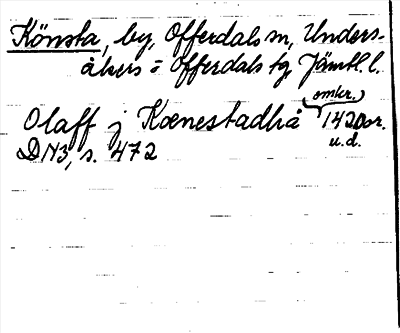 Könsta, by, Offerdals sn, Unders-
åkers = Offerdals tg, Jämtl. l.
(omkr.)
Olaff j Kœnestadha 1420 or.
DN3, s. 472 u.d.